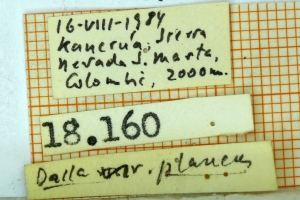 16-VIII-1984
Kanerúa, Sierra
Nevada S. Marta,
Colombie, 2000m.
18.160
Dalla r. plancus